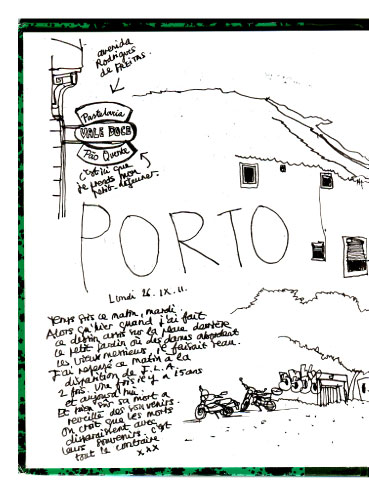 avenida
Rodrigues
de FREITAS.
Pastelaria
VALE DOCE
Pão Quente
c'est ici que
je prends mon
petit-déjeuner.
PORTO
Lundi 26. IX. 11.
Temps gris ce matin, mardi.
Alors qu'hier quand j'ai fait
ce dessin assis sur la place derrière
le petit jardin où des dames abordent
les vieux messieurs, il faisait beau.
J'ai repensé ce matin à la
disparition de J.L.A.
2 fois. Une fois il y a 15 ans
et aujourd'hui.
Et bien sûr sa mort a
réveillé des souvenirs.
On croit que les morts
disparaissent avec
leurs souvenirs. c'est
tout le contraire
xxx